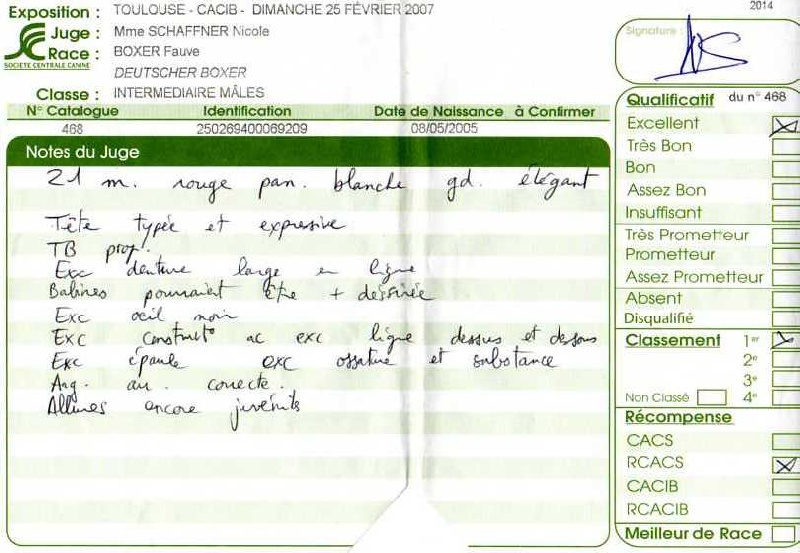 Exposition : TOULOUSE - CACIB - DIMANCHE 25 FÉVRIER 2007
2014
Juge : Mme SCHAFFNER Nicole
Race : BOXER Fauve
SOCIÉTÉ CENTRALE CANINE
DEUTSCHER BOXER
Classe : INTERMEDIAIRE MÂLES
N° Catalogue Identification Date de Naissance à Confirmer
468 250269400069209 08/05/2005
Notes du Juge
21 m. rouge pan. blanche gd. élégant
Tête typée et expressive
TB prop.
Exc denture large en ligne
Babines pourraient être + dessinée
Exc oeil noir
Exc construct° ac exc ligne dessus et dessous
Exc épaule exc ossature et substance
Ang. arr. correcte.
Allures encore juvéniles
Signature :
Qualificatif du n° 468
Excellent
Très Bon
Bon
Assez Bon
Insuffisant
Très Prometteur
Prometteur
Assez Prometteur
Absent
Disqualifié
Classement 1er
2e
3e
Non Classé 4e
Récompense
CACS
RCACS
CACIB
RCACIB
Meilleur de Race